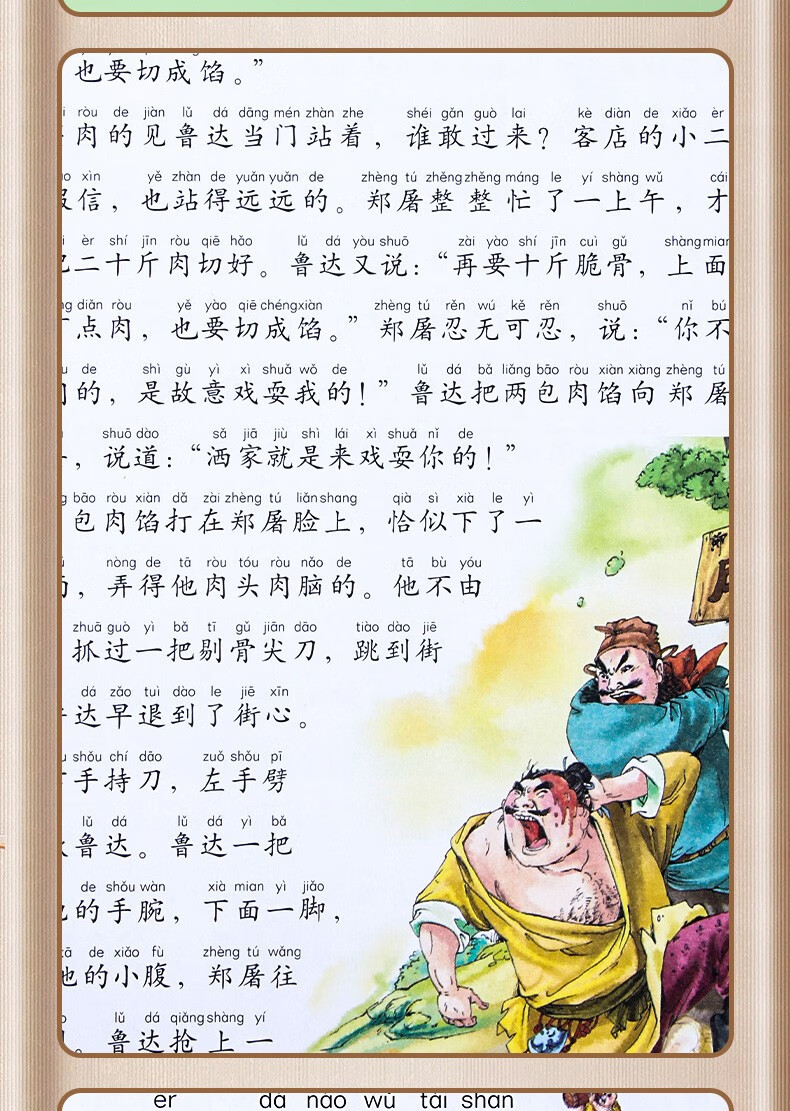 也要切成馅。”
ròu de jiàn lǔ dá dāng mén zhàn zhe shéi gǎn guò lai kè diàn de xiǎo èr
肉的见鲁达当门站着，谁敢过来？客店的小二
xìn yě zhàn de yuǎn yuǎn de zhèng tú zhěng zhěng máng le yí shàng wǔ cái
信，也站得远远的。郑屠整整忙了一上午，才
èr shí jīn ròu qiē hǎo lǔ dá yòu shuō zài yào shí jīn cuì gǔ shàng mian
二十斤肉切好。鲁达又说：“再要十斤脆骨，上面
diǎn ròu yě yào qiē chéng xiàn zhèng tú rěn wú kě rěn shuō nǐ bú
点肉，也要切成馅。”郑屠忍无可忍，说：“你不
de shì gù yì xì shuǎ wǒ de lǔ dá bǎ liǎng bāo ròu xiàn xiàng zhèng tú
的，是故意戏耍我的！”鲁达把两包肉馅向郑屠
shuō dào sǎ jiā jiù shì lái xì shuǎ nǐ de
，说道：“洒家就是来戏耍你的！”
bāo ròu xiàn dǎ zài zhèng tú liǎn shang qià sì xià le yì
包肉馅打在郑屠脸上，恰似下了一
nòng de tā ròu tóu ròu nǎo de tā bù yóu
，弄得他肉头肉脑的。他不由
zhuā guò yì bǎ tī gǔ jiān dāo tiào dào jiē
抓过一把剔骨尖刀，跳到街
dá zǎo tuì dào le jiē xīn
达早退到了街心。
shǒu chí dāo zuǒ shǒu pī
手持刀，左手劈
lǔ dá lǔ dá yì bǎ
鲁达。鲁达一把
de shǒu wàn xià mian yì jiǎo
的手腕，下面一脚，
tā de xiǎo fù zhèng tú wǎng
他的小腹，郑屠往
lǔ dá qiǎng shàng yí
。鲁达抢上一
èr dà nào wǔ tái shān